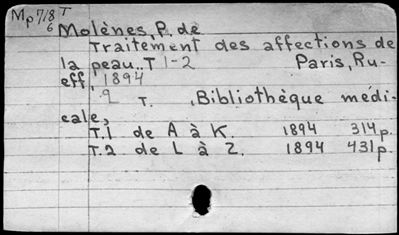 Mp 718 T
6
Molènes, P. de
Traitement des affections de
la peau. T 1-2 Paris, Ru-
eff, 1894
2 T. (Bibliothèque médi-
cale,
T.1 de A à K. 1894 314 p.
T.2 de L à Z. 1894 431 p.